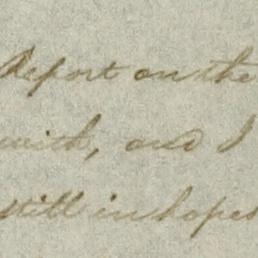 Report on the
with, and I
still in hopes